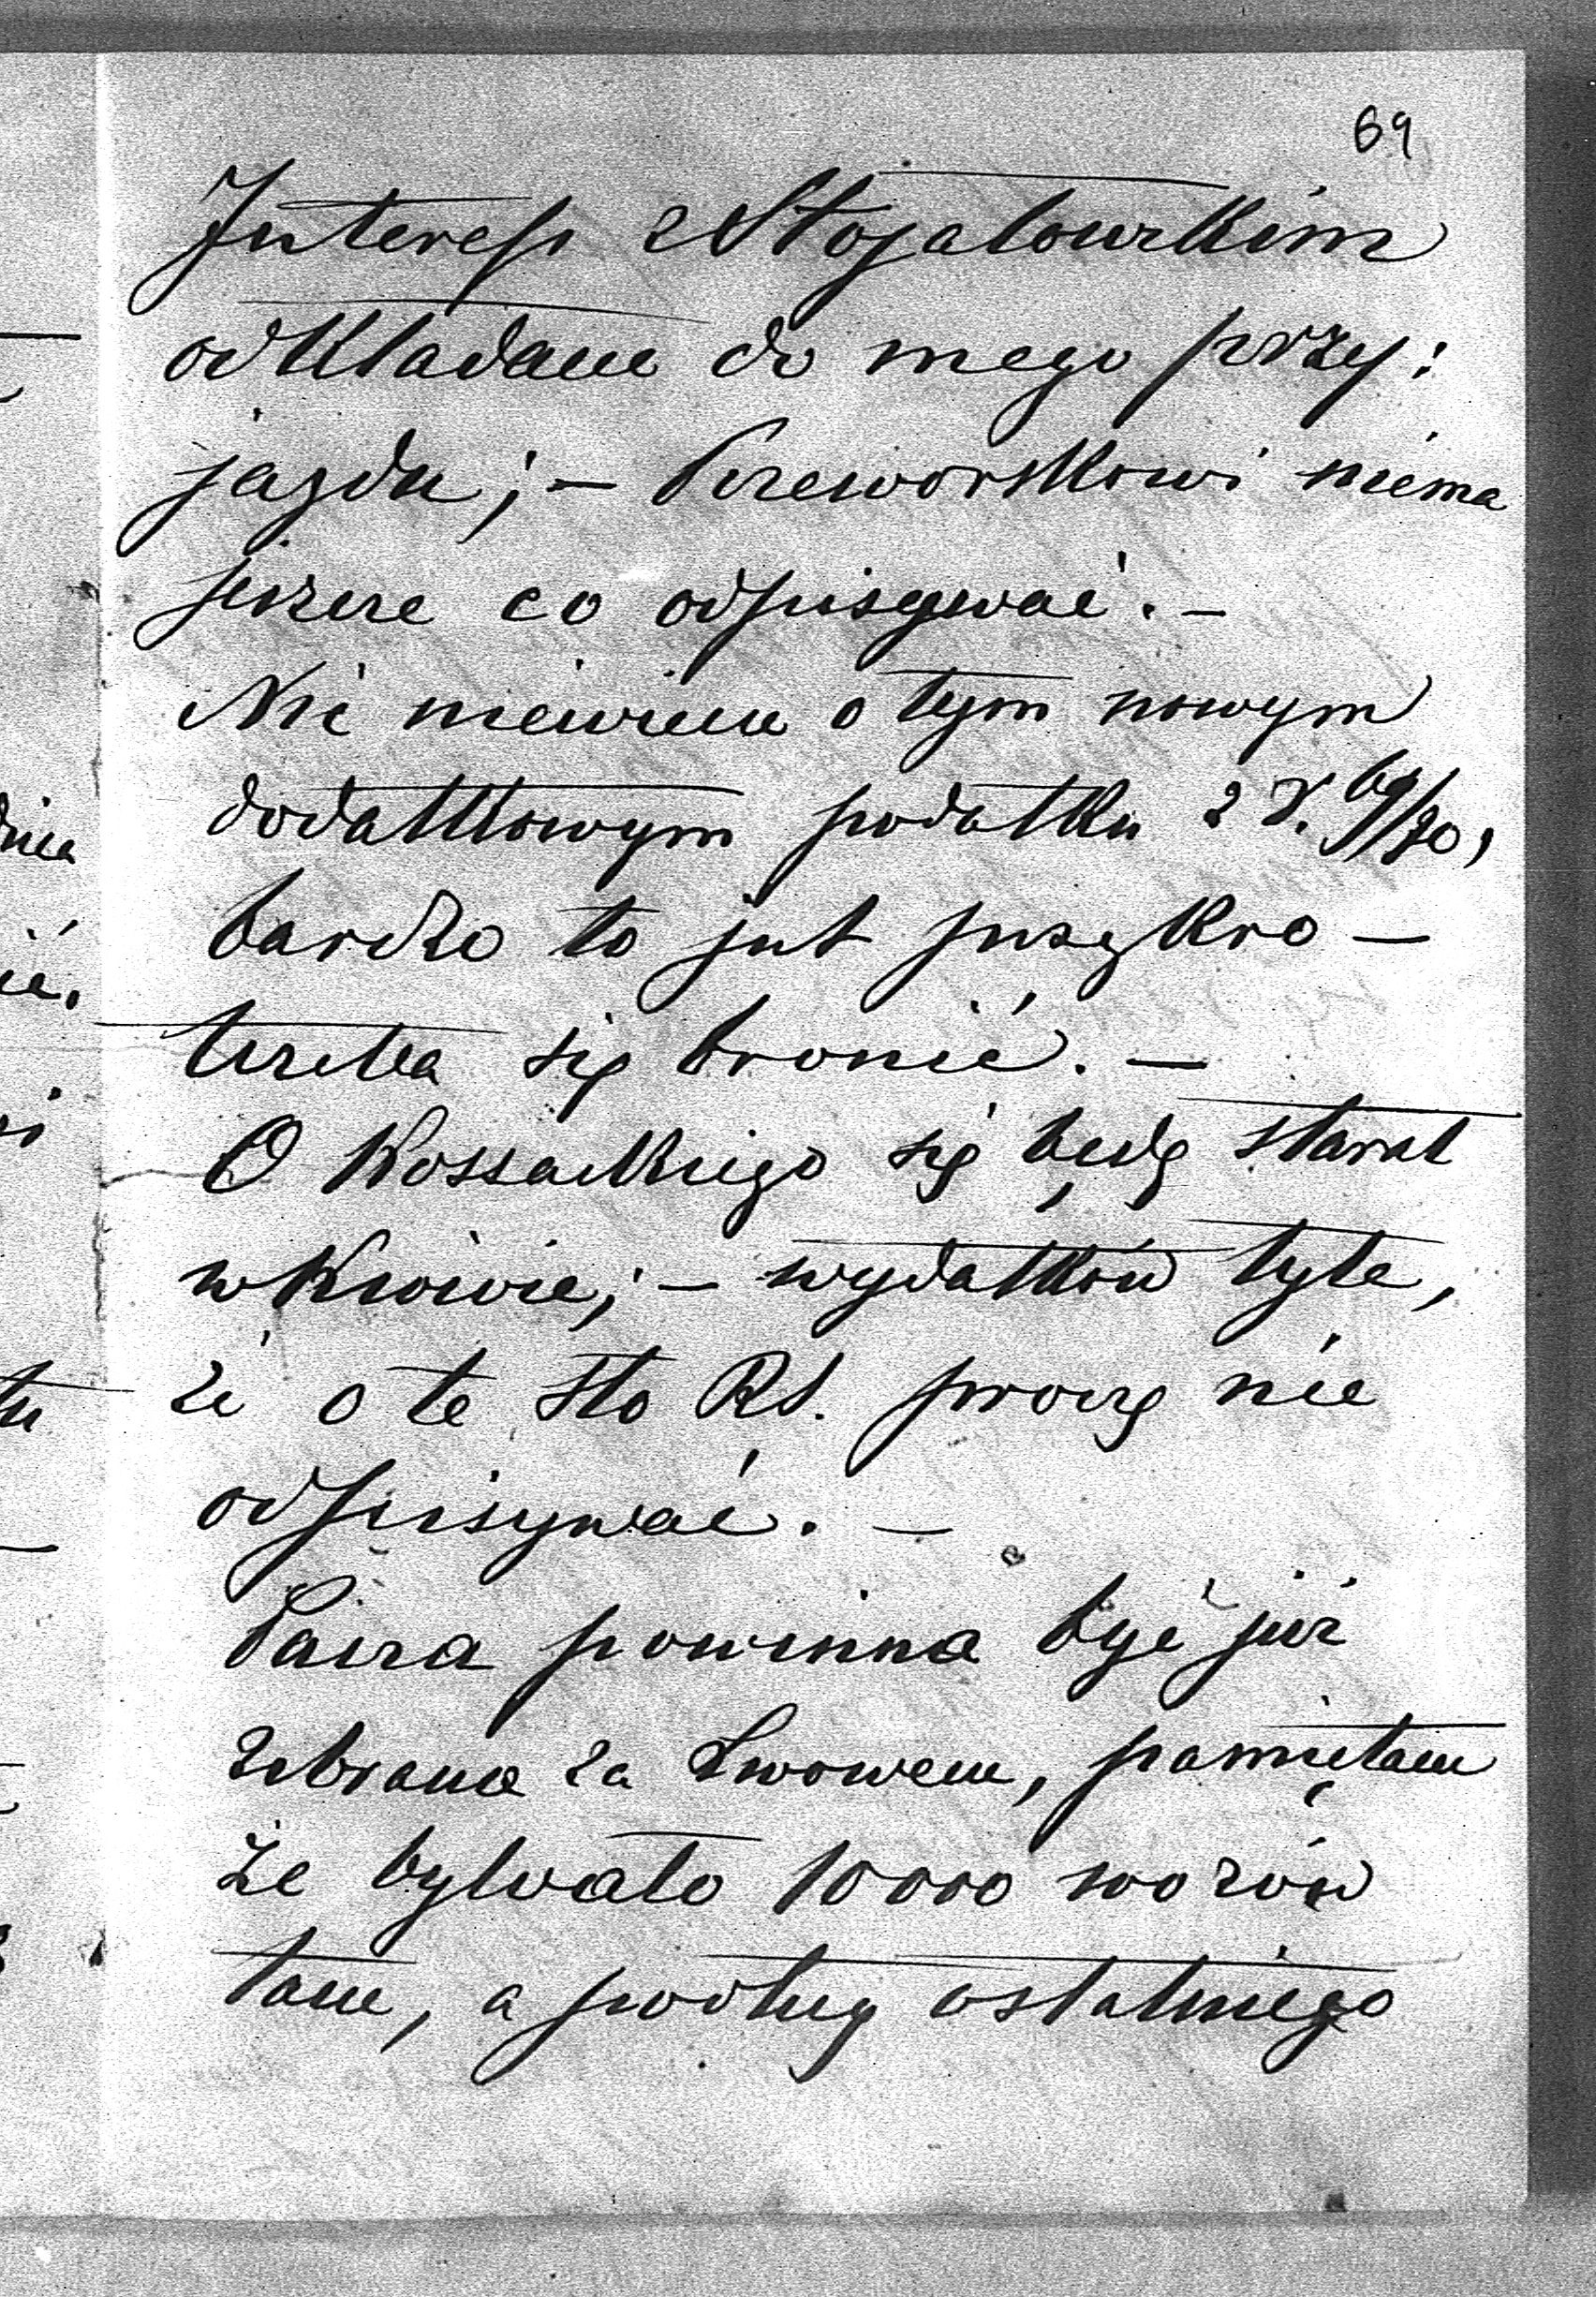 69
Interess z Stojałowskim
odkładam do mego przy:
jazdu; — Przeworskowi niema
jeszcze co odpisywać. —
Nic niewiem o tym nowym
dodatkowym podatku z r. 69/70,
bardzo to jest przykro —
trzeba się bronić. —
O Kossackiego się będę starał
w Kiiowie; — wydatków tyle,
że o te sto Rs. proszę nie
odpisywać. —
Pasza powinna być już
zebrana za Lwowem, pamiętam
że bywało 10000 wozów
tam, a podług ostatniego